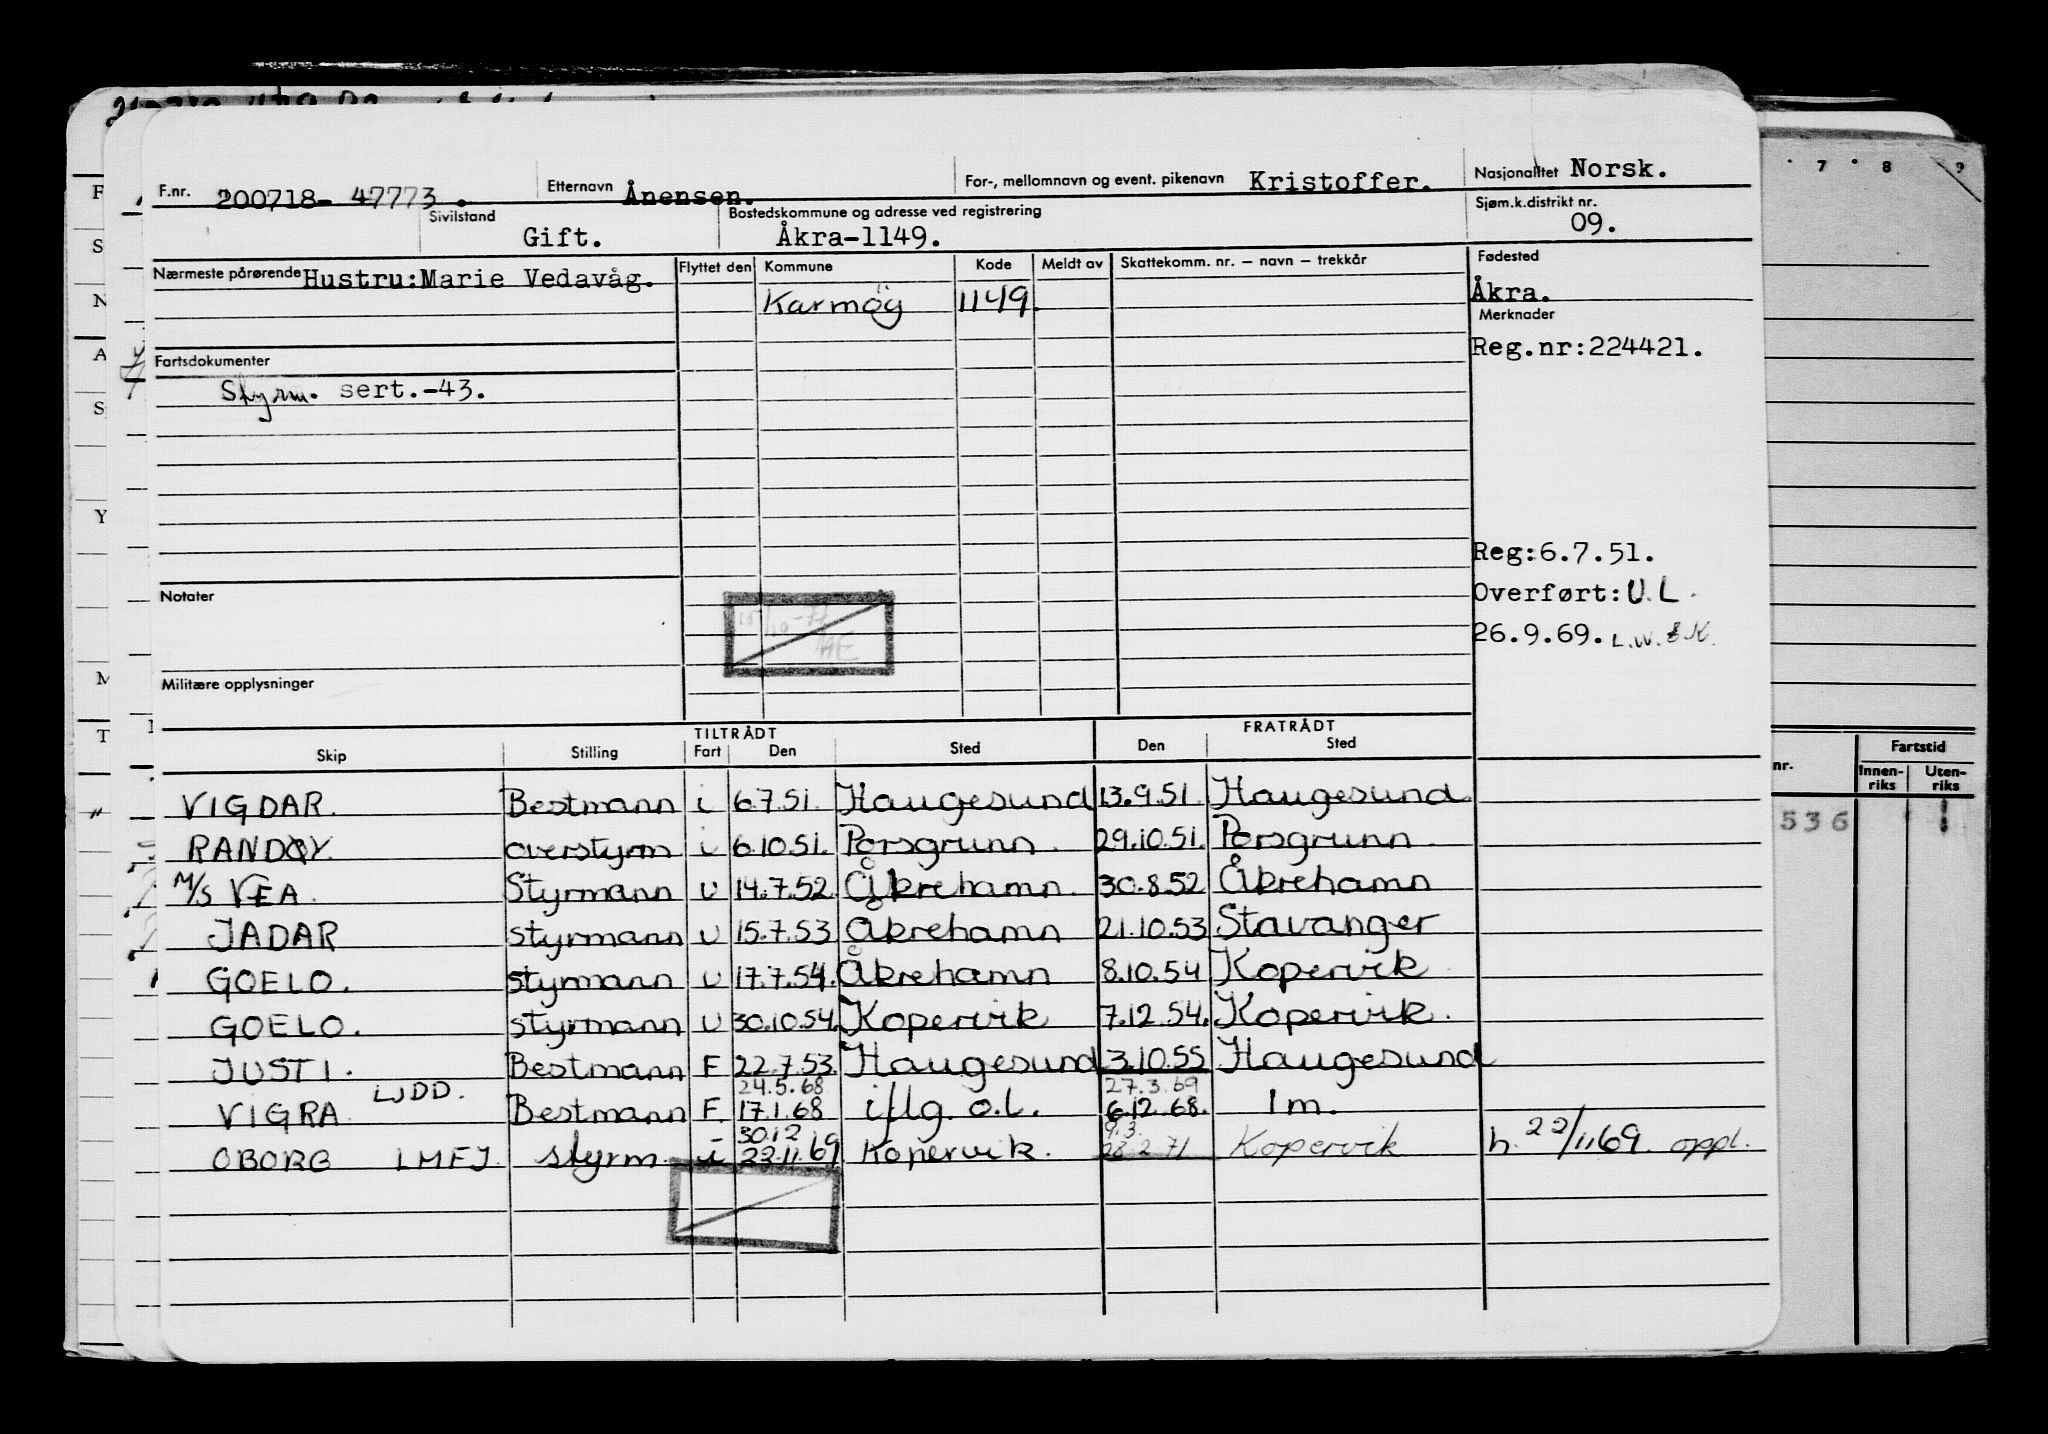 F.nr. 200718- 47773. Etternavn Ånensen. For-, mellomnavn og event. pikenavn Kristoffer. Nasjonalitet Norsk.
Sivilstand Gift. Bostedskommune og adresse ved registrering Åkra-1149. Sjøm.k.distrikt nr. 09.
Nærmeste pårørende Hustru:Marie Vedavåg. Flyttet den Kommune Kode Meldt av Skattekomm. nr. — navn — trekkår Fødested
Karmøy 1149. Åkra.
Merknader
Fartsdokumenter Reg.nr:224421.
Styrm. sert.-43.
Reg:6.7.51.
Notater Overført: U.L.
26.9.69.
Militære opplysninger
TILTRÅDT FRATRÅDT
Skip Stilling Fart Den Sted Den Sted
VIGDAR. Bestmann i 6.7.51. Haugesund 13.9.51. Haugesund
RANDØY. overstyrm i 6.10.51. Porsgrunn. 29.10.51. Porsgrunn.
M/S VEA. Styrmann U 14.7.52. Åkrehamn. 30.8.52 Åkrehamn
JADAR styrmann U 15.7.53 Åkrehamn 21.10.53 Stavanger
GOELO. styrmann U 17.7.54. Åkrehamn 8.10.54 Kopervik
GOELO. styrmann U 30.10.54. Kopervik 7.12.54. Kopervik.
JUSTI. Bestmann F 22.7.53. Haugesund 3.10.55 Haugesund
24.5.68 27.3.69
VIGRA LJDD. Bestmann F. 17.1.68 iflg. o.l. 6.12.68. 1 m.
30.12 9.3.
OBORG LMFJ styrm i 22.11.69 Kopervik. 28.2.71 Kopervik h. 22/11.69. oppl.
7 8 9
nr. Fartstid
Innen-riks Uten-riks
536
F
S
N
A
S
Y
M
T